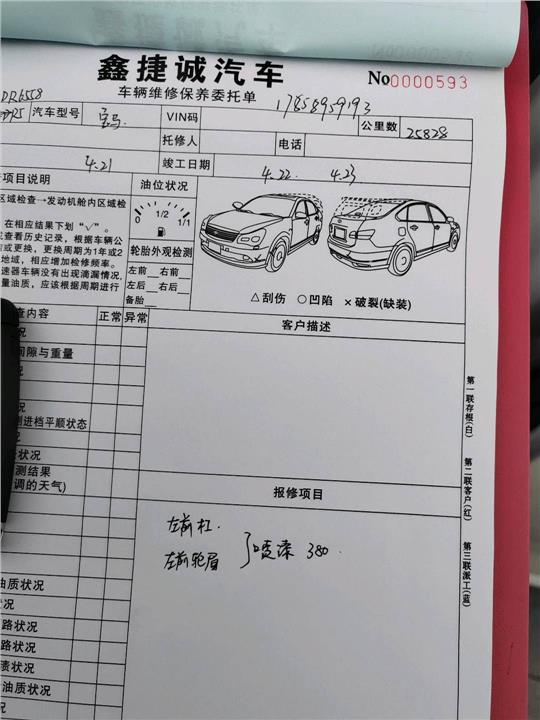 鑫捷诚汽车
No 0000593
车辆维修保养委托单
DR6558
17858959193
汽车型号 宝马 VIN码 公里数 25828
托修人 电话
4.21 竣工日期 4.22 4.23
项目说明 油位状况
区域检查→发动机舱内区域检
0 1/2 1/1
在相应结果下划"√"。
查看历史记录，根据车辆公
或更换，更换周期为1年或2
地域，相应增加检修频率。
速器车辆没有出现滴漏情况，
量油质，应该根据周期进行
轮胎外观检测
左前 右前
左后 右后
备胎
△刮伤 ○凹陷 ×破裂(缺装)
查内容 正常 异常
客户描述
况
间隙与重量
况
测进档平顺状态
况
状况
测结果
调的天气)
报修项目
左前杠.
左前轮眉
喷漆 380
油质状况
况
路状况
路状况
渍状况
油质状况
状况
第一联存根(白)
第二联客户(红)
第三联派工(蓝)